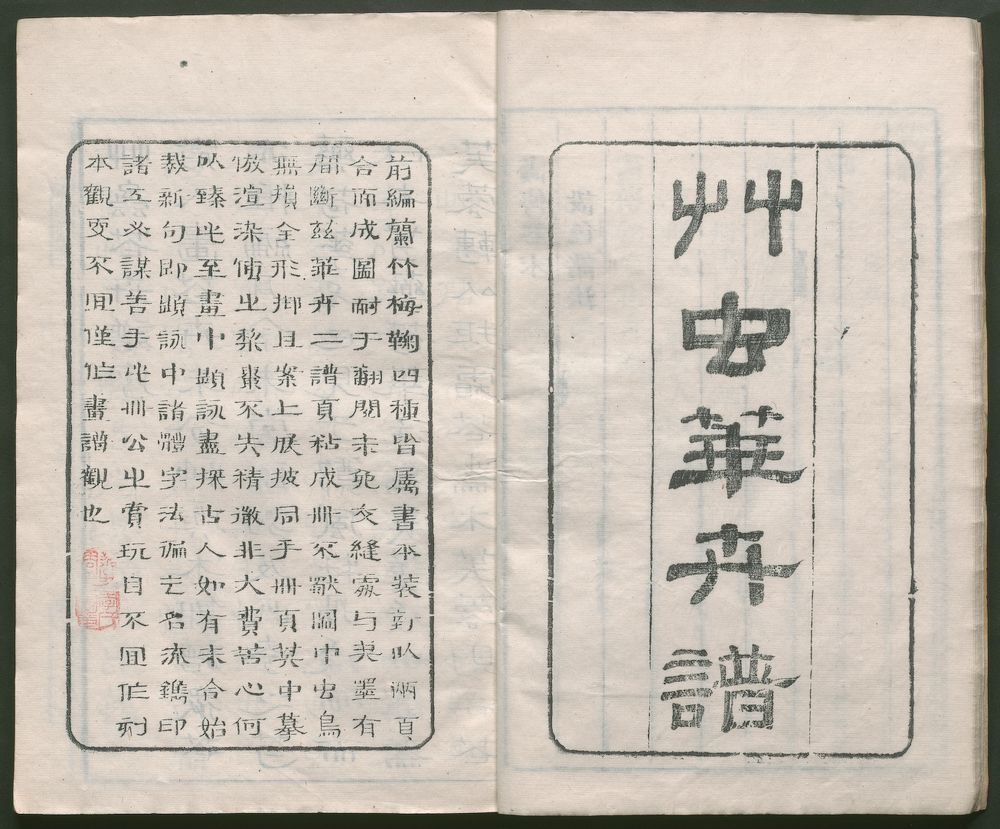 艸虫華卉譜
前編蘭竹梅鞠四種皆属書本裝訂以兩頁
合而成圖耐于翻閱未免交縫處与筆墨有
間斷兹華卉二譜頁粘成冊不獸圖中虫鳥
無損全形抑且案上展披同手冊頁其中摹
倣渲染傅之棃棗不失精微非大費苦心何
以臻此至畫中題詠盡採古人如有未合始
裁新句即題詠中諸體字法徧乞名流鐫印
諸工必謀善手此冊公之賞玩自不宜作刻
本觀更不宜僅作畫譜觀也